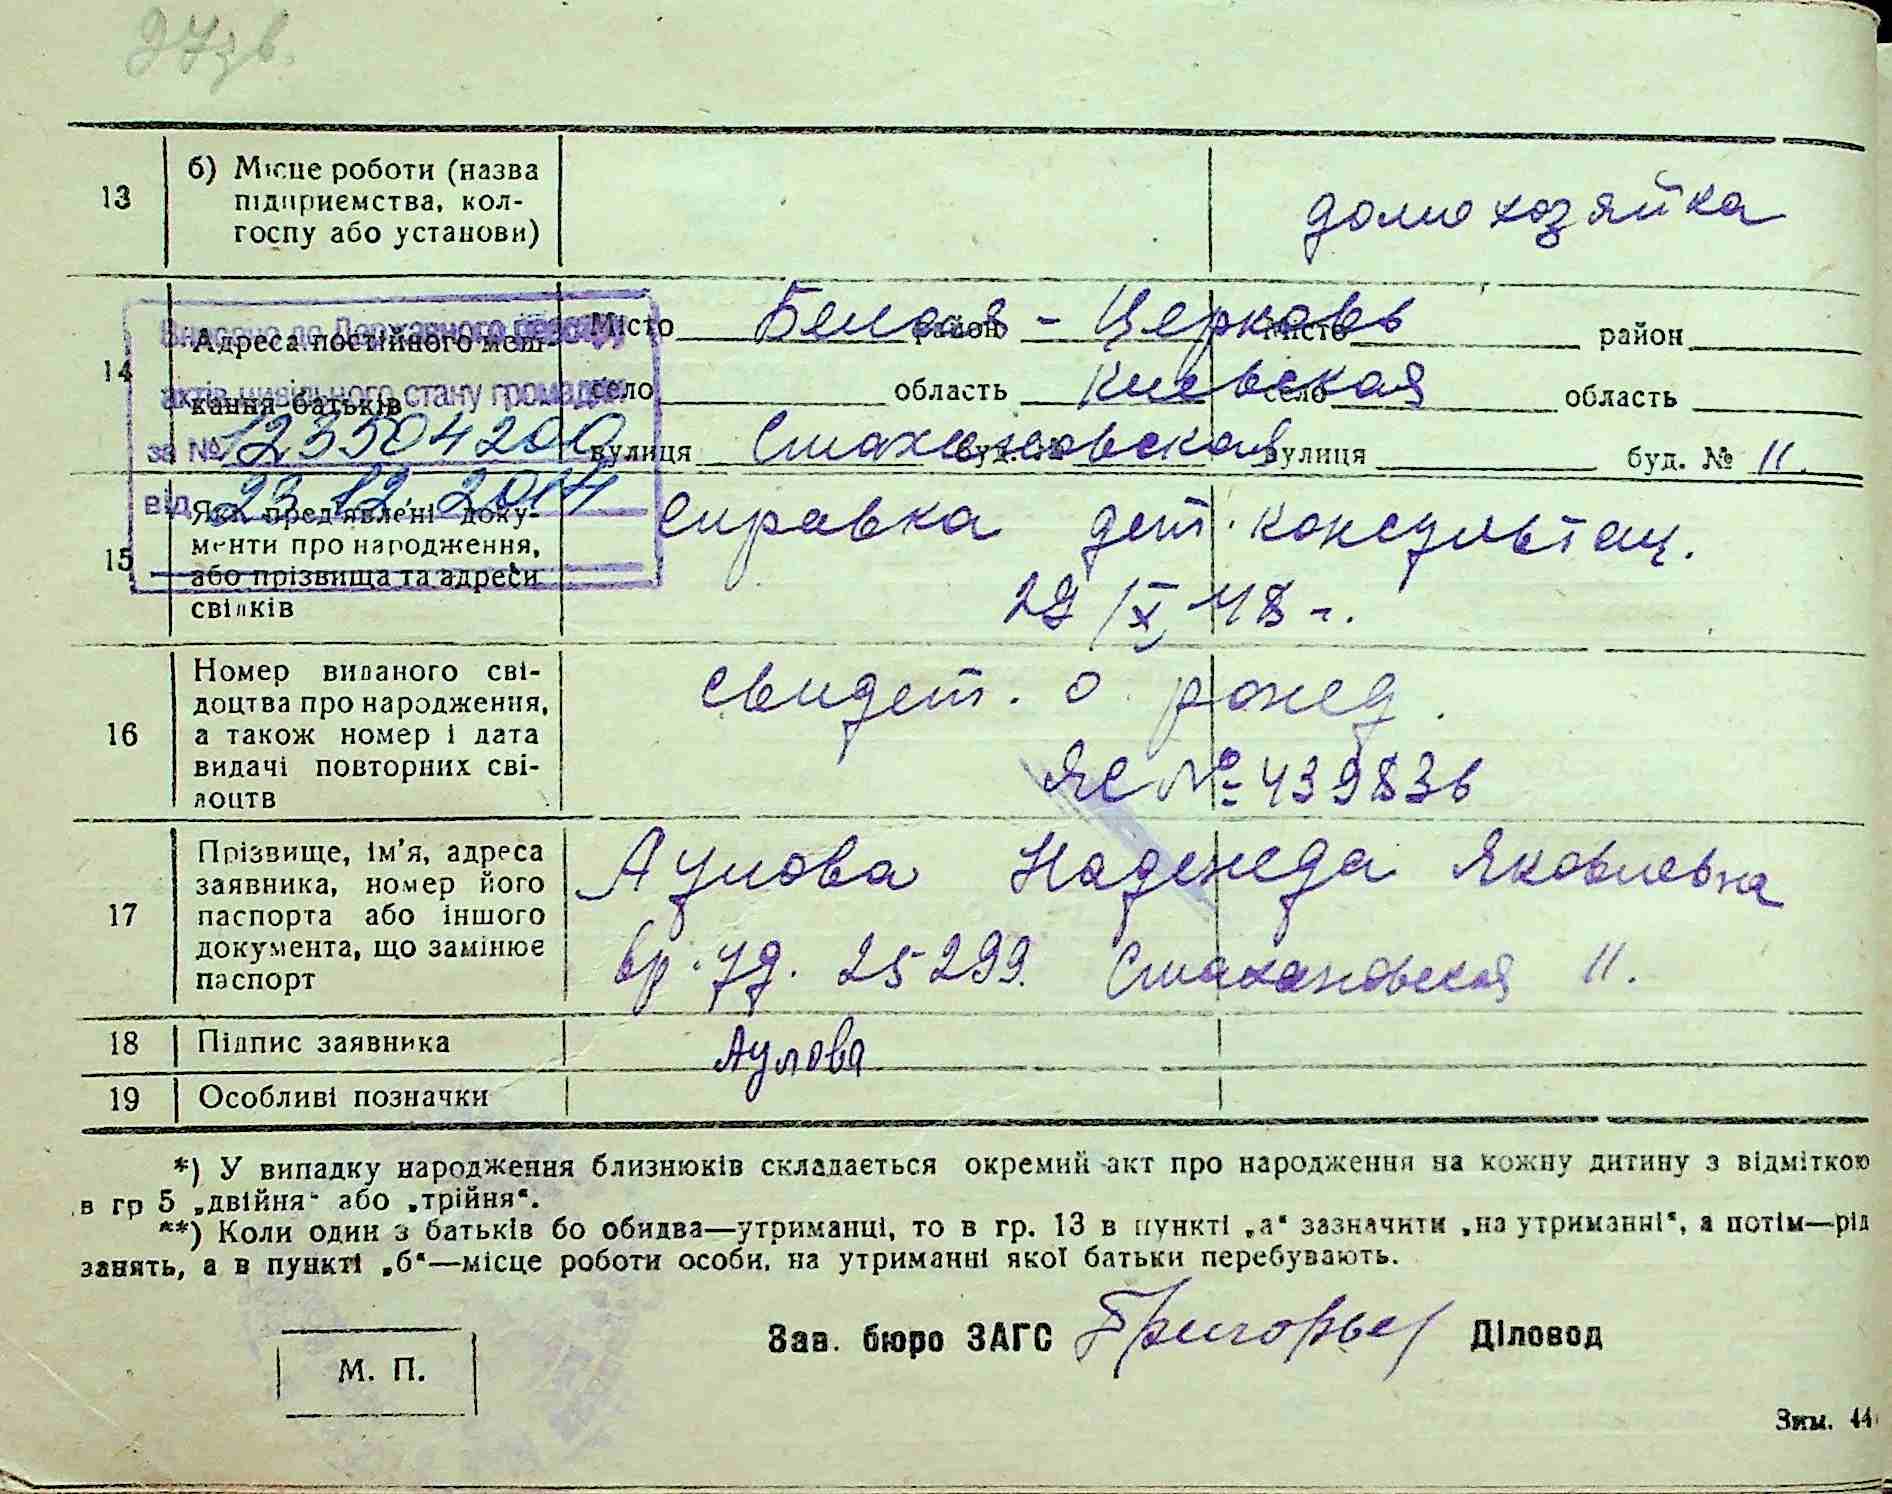 97зв.
13
б) Місце роботи (назва
підприємства, кол-
госпу або установи)
домохозяйка
14
Адреса постійного меш-
кання батьків
Внесено до Державного реєстру
актів цивільного стану громадян
за № 123504200
від 23.12.2014
Місто Белая - Церковь район Місто район
село область Киевская село область
вулиця Стахановская буд. № вулиця буд. № 11.
15
Які пред'явлені доку-
менти про народження,
або прізвища та адреси
свідків
справка дет. консультац.
29/X 48 г.
16
Номер виданого сві-
доцтва про народження,
а також номер і дата
видачі повторних сві-
доцтв
свидет. о рожед.
ЯС № 439836
17
Прізвище, ім'я, адреса
заявника, номер його
паспорта або іншого
документа, що замінює
паспорт
Аулова Надежда Яковлевна
вр. уд. 25299. Стахановская 11.
18
Підпис заявника
Аулова
19
Особливі позначки
*) У випадку народження близнюків складається окремий акт про народження на кожну дитину з відміткою
в гр 5 „двійня“ або „трійня“.
**) Коли один з батьків бо обидва—утриманці, то в гр. 13 в пункті „а“ зазначити „на утриманні“, а потім—рід
занять, а в пункті „б“—місце роботи особи, на утриманні якої батьки перебувають.
Зав. бюро ЗАГС Григорьев Діловод
М. П.
Зим. 44